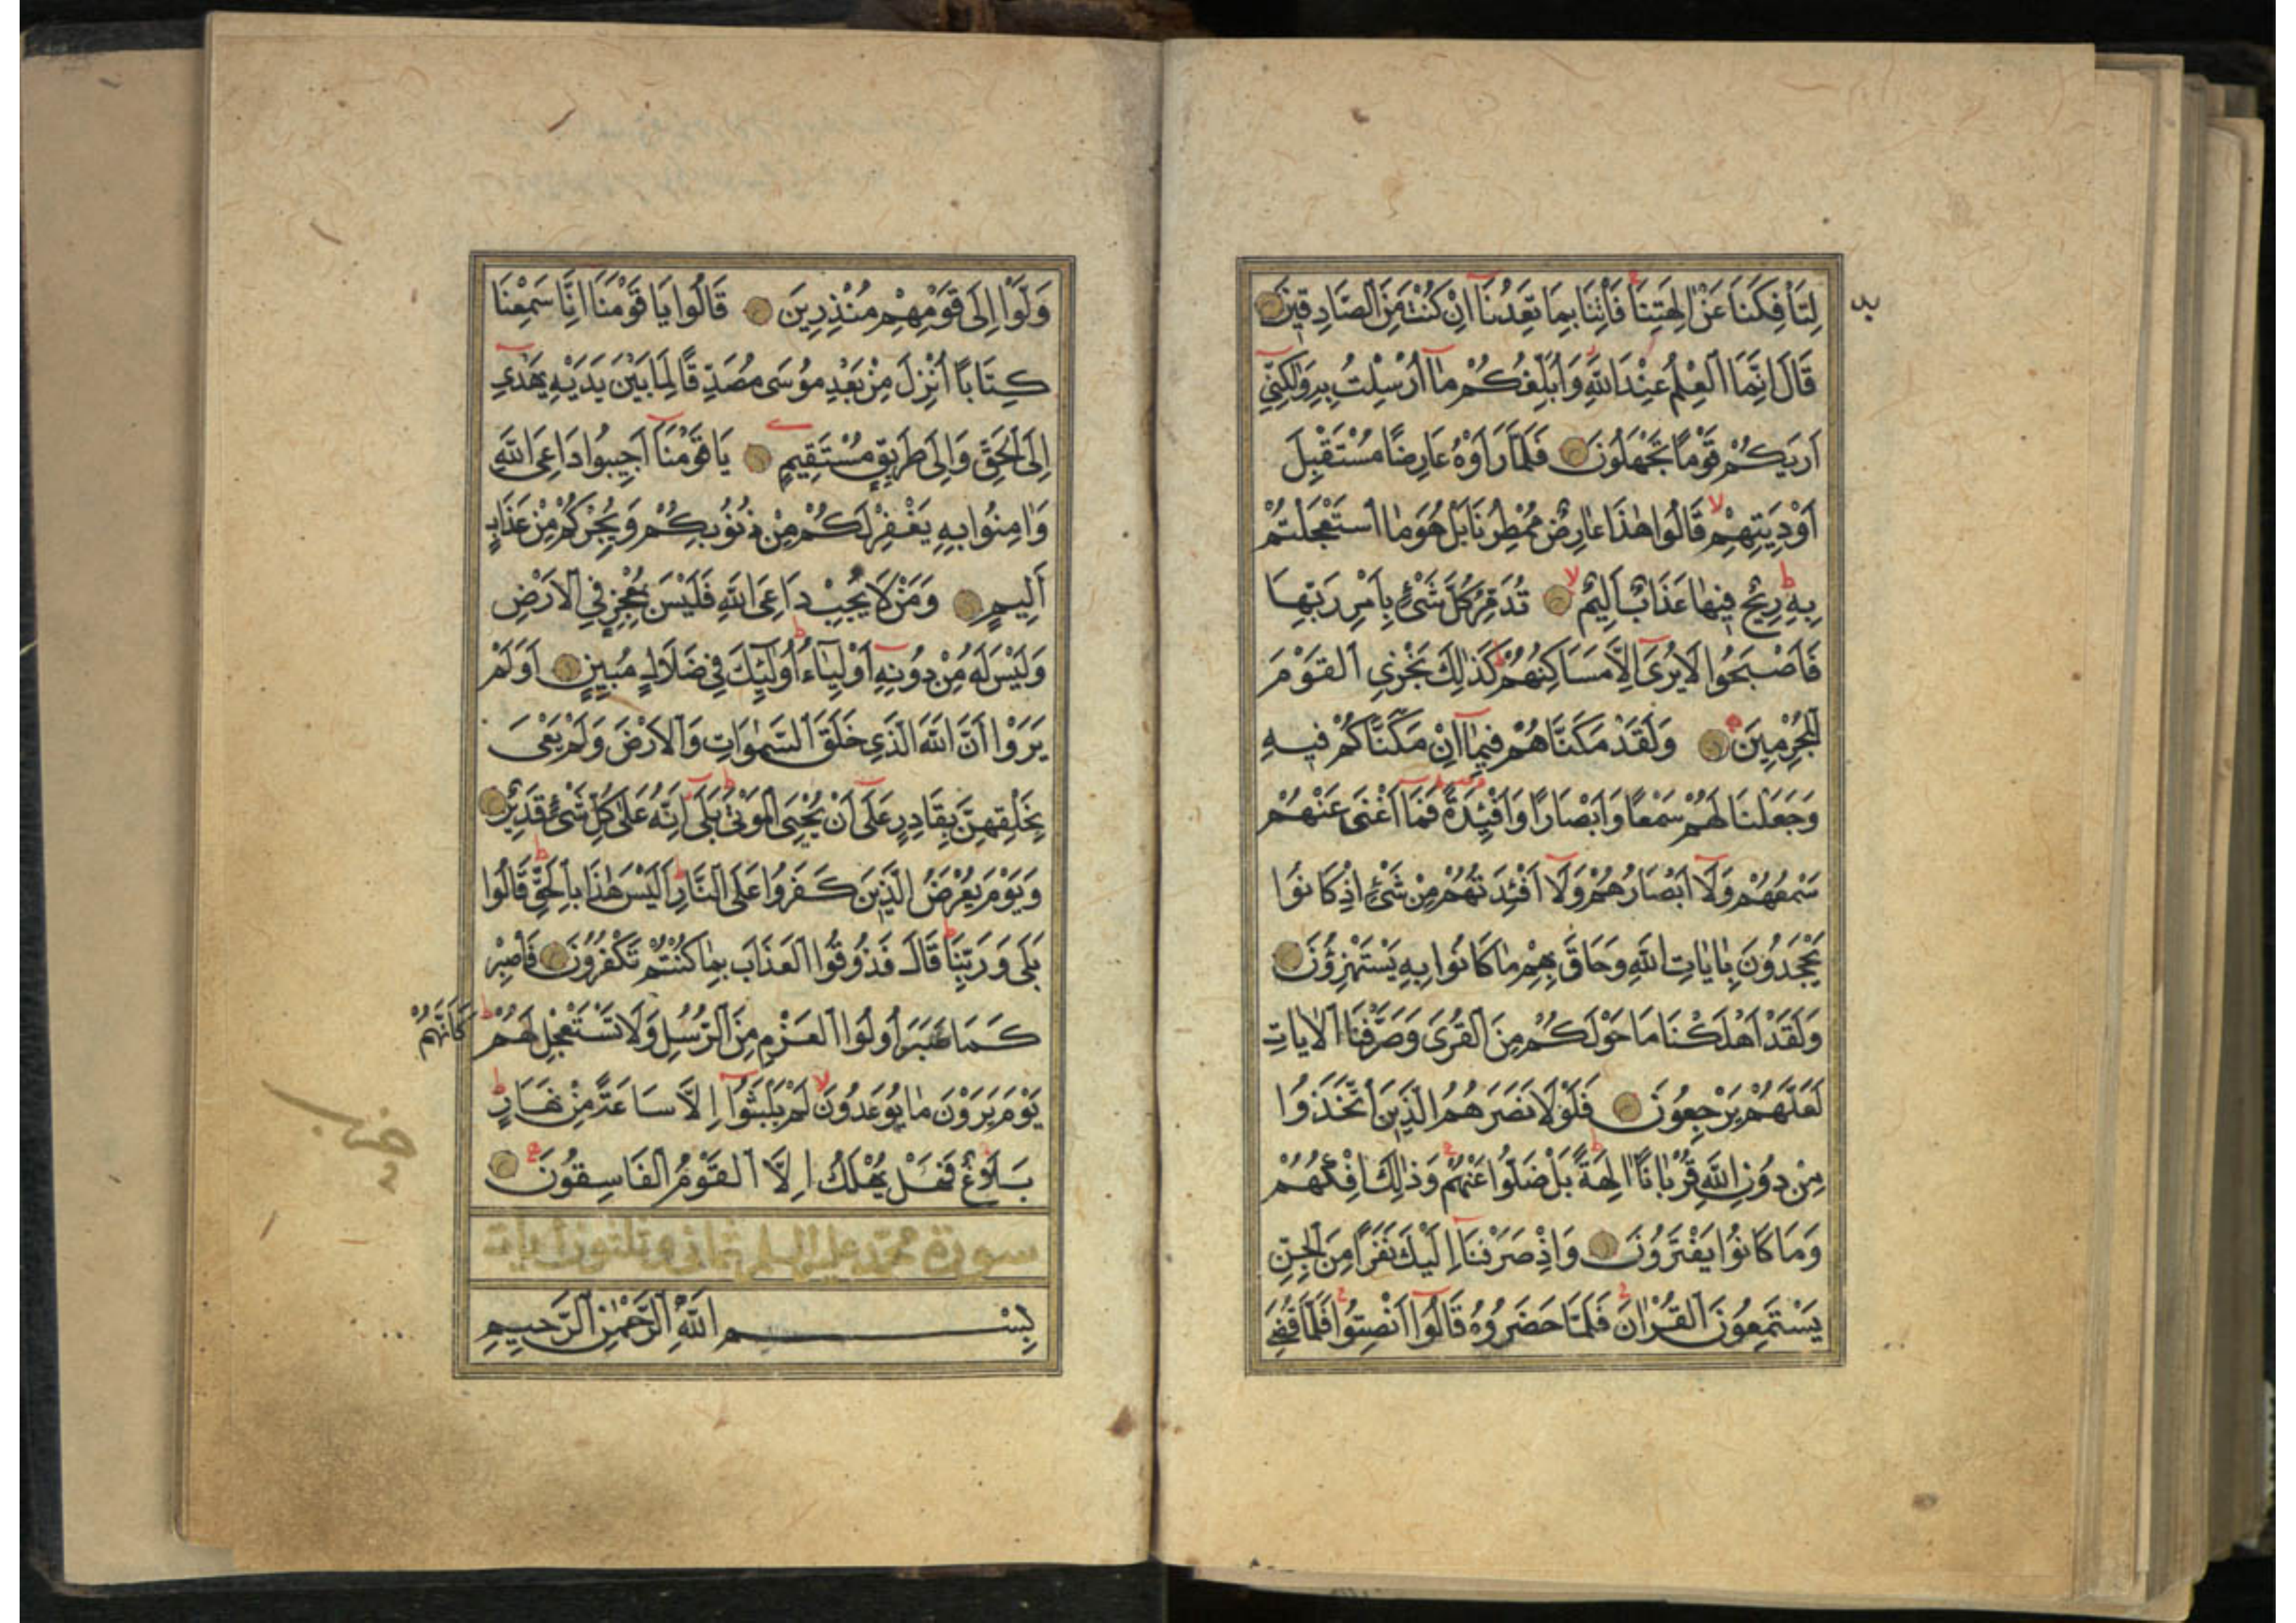 لِتَأْفِكَنَا عَنْ اٰلِهَتِنَا فَأْتِنَا بِمَا تَعِدُنَا اِنْ كُنْتَ مِنَ الصَّادِقِينَ
قَالَ اِنَّمَا الْعِلْمُ عِنْدَ اللّٰهِ وَاُبَلِّغُكُمْ مَا اُرْسِلْتُ بِهِ وَلٰكِنِّي
اَرٰيكُمْ قَوْمًا تَجْهَلُونَ فَلَمَّا رَاَوْهُ عَارِضًا مُسْتَقْبِلَ
اَوْدِيَتِهِمْ قَالُوا هٰذَا عَارِضٌ مُمْطِرُنَا بَلْ هُوَ مَا اسْتَعْجَلْتُمْ
بِهِ رِيحٌ فِيهَا عَذَابٌ اَلِيمٌ تُدَمِّرُ كُلَّ شَيْءٍ بِاَمْرِ رَبِّهَا
فَاَصْبَحُوا لَا يُرَى اِلَّا مَسَاكِنُهُمْ كَذٰلِكَ نَجْزِي الْقَوْمَ
الْمُجْرِمِينَ وَلَقَدْ مَكَّنَّاهُمْ فِيمَا اِنْ مَكَّنَّاكُمْ فِيهِ
وَجَعَلْنَا لَهُمْ سَمْعًا وَاَبْصَارًا وَاَفْئِدَةً فَمَا اَغْنٰى عَنْهُمْ
سَمْعُهُمْ وَلَا اَبْصَارُهُمْ وَلَا اَفْئِدَتُهُمْ مِنْ شَيْءٍ اِذْ كَانُوا
يَجْحَدُونَ بِاٰيَاتِ اللّٰهِ وَحَاقَ بِهِمْ مَا كَانُوا بِهِ يَسْتَهْزِؤُنَ
وَلَقَدْ اَهْلَكْنَا مَا حَوْلَكُمْ مِنَ الْقُرٰى وَصَرَّفْنَا الْاٰيَاتِ
لَعَلَّهُمْ يَرْجِعُونَ فَلَوْلَا نَصَرَهُمُ الَّذِينَ اتَّخَذُوا
مِنْ دُونِ اللّٰهِ قُرْبَانًا اٰلِهَةً بَلْ ضَلُّوا عَنْهُمْ وَذٰلِكَ اِفْكُهُمْ
وَمَا كَانُوا يَفْتَرُونَ وَاِذْ صَرَفْنَا اِلَيْكَ نَفَرًا مِنَ الْجِنِّ
يَسْتَمِعُونَ الْقُرْاٰنَ فَلَمَّا حَضَرُوهُ قَالُوا اَنْصِتُوا فَلَمَّا قُضِيَ
وَلَّوْا اِلَى قَوْمِهِمْ مُنْذِرِينَ قَالُوا يَا قَوْمَنَا اِنَّا سَمِعْنَا
كِتَابًا اُنْزِلَ مِنْ بَعْدِ مُوسَى مُصَدِّقًا لِمَا بَيْنَ يَدَيْهِ يَهْدِي
اِلَى الْحَقِّ وَاِلَى طَرِيقٍ مُسْتَقِيمٍ يَا قَوْمَنَا اَجِيبُوا دَاعِيَ اللّٰهِ
وَاٰمِنُوا بِهِ يَغْفِرْ لَكُمْ مِنْ ذُنُوبِكُمْ وَيُجِرْكُمْ مِنْ عَذَابٍ
اَلِيمٍ وَمَنْ لَا يُجِبْ دَاعِيَ اللّٰهِ فَلَيْسَ بِمُعْجِزٍ فِي الْاَرْضِ
وَلَيْسَ لَهُ مِنْ دُونِهِ اَوْلِيَاءُ اُولٰئِكَ فِي ضَلَالٍ مُبِينٍ اَوَلَمْ
يَرَوْا اَنَّ اللّٰهَ الَّذِي خَلَقَ السَّمٰوَاتِ وَالْاَرْضَ وَلَمْ يَعْيَ
بِخَلْقِهِنَّ بِقَادِرٍ عَلَى اَنْ يُحْيِيَ الْمَوْتٰى بَلَى اِنَّهُ عَلَى كُلِّ شَيْءٍ قَدِيرٌ
وَيَوْمَ يُعْرَضُ الَّذِينَ كَفَرُوا عَلَى النَّارِ اَلَيْسَ هٰذَا بِالْحَقِّ قَالُوا
بَلَى وَرَبِّنَا قَالَ فَذُوقُوا الْعَذَابَ بِمَا كُنْتُمْ تَكْفُرُونَ فَاصْبِرْ
كَمَا صَبَرَ اُولُوا الْعَزْمِ مِنَ الرُّسُلِ وَلَا تَسْتَعْجِلْ لَهُمْ كَاَنَّهُمْ
يَوْمَ يَرَوْنَ مَا يُوعَدُونَ لَمْ يَلْبَثُوا اِلَّا سَاعَةً مِنْ نَهَارٍ
بَلَاغٌ فَهَلْ يُهْلَكُ اِلَّا الْقَوْمُ الْفَاسِقُونَ
حزب
سورة محمد عليه السلم ثمانى وثلثون ايات
بِسْمِ اللّٰهِ الرَّحْمٰنِ الرَّحِيمِ